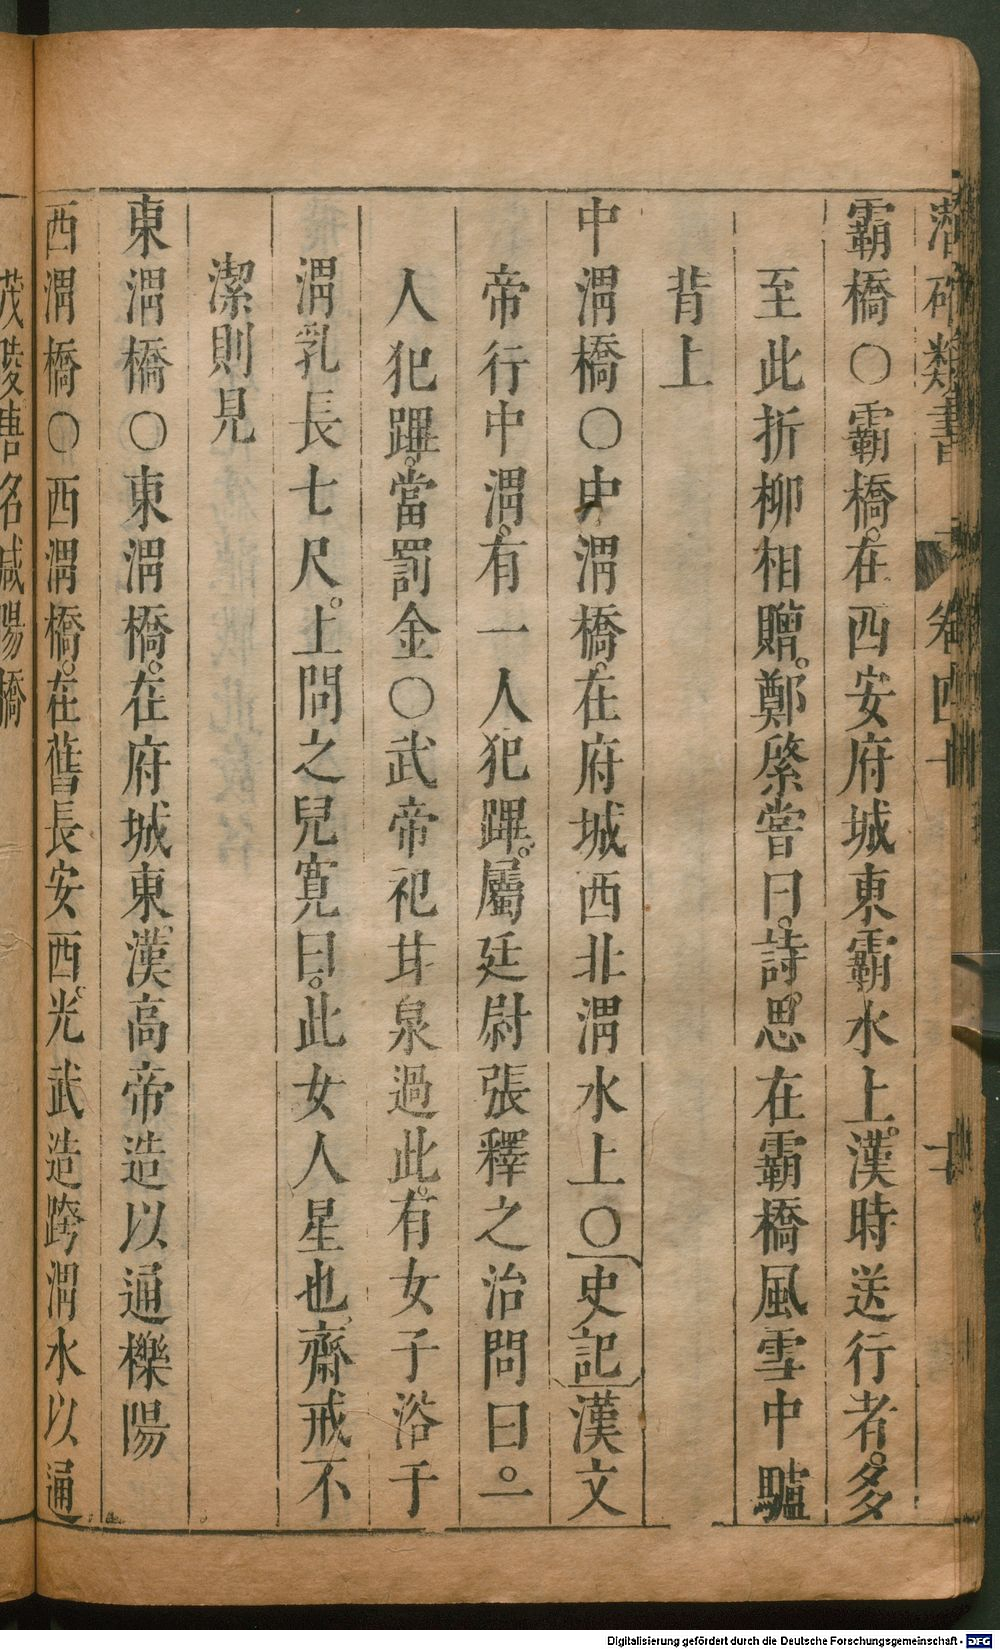 潛確類書 卷四十 十
霸橋○霸橋。在西安府城東霸水上。漢時送行者。多
至此折柳相贈。鄭綮嘗曰。詩思在霸橋風雪中驢
背上
中渭橋○中渭橋。在府城西北渭水上○史記漢文
帝行中渭。有一人犯蹕。屬廷尉張釋之治問曰。一
人犯蹕。當罰金○武帝祀甘泉過此。有女子浴于
渭乳長七尺。上問之兒寬曰。此女人星也。齋戒不
潔則見
東渭橋○東渭橋。在府城東。漢高帝造以通櫟陽
西渭橋○西渭橋。在舊長安西。光武造跨渭水以通
茂陵唐名咸陽橋
Digitalisierung gefördert durch die Deutsche Forschungsgemeinschaft - DFG